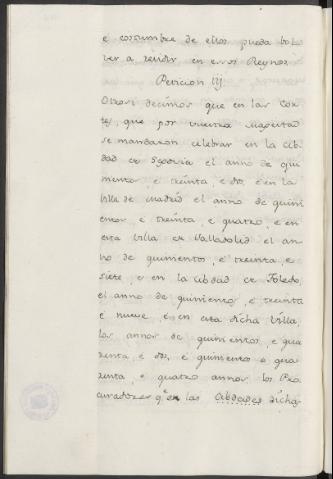 e costumbre de ellos pueda bol
ver a rendir en esos Reynos.
Peticion IIJ.
Otrosi decimos que en las Cor
tes, que por vuestra Magestad
se mandaron celebrar en la cib
dad de Segovia el anno de qui
nientos, e treinta, e dos, e en la
villa de Madrid el anno de quini
entos, e treinta, e quatro, e en
esta villa de Valladolid el an
no de quinientos, e treinta, e
siete, e en la cibdad de Toledo,
el anno de quinientos, e treinta
e nueve, e en esta dicha villa,
los annos de quinientos, e qua
renta, e dos, e quinientos e qua
renta, e quatro annos, los Pro
curadores qe en las cibdades dicha